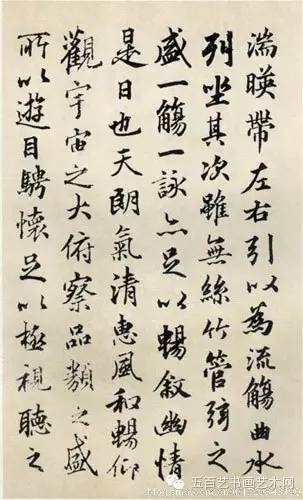 湍暎帶左右引以為流觴曲水
列坐其次雖無絲竹管弦之
盛一觴一詠亦足以暢敘幽情
是日也天朗氣清惠風和暢仰
觀宇宙之大俯察品類之盛
所以遊目騁懷足以極視聽之
五百艺书画艺术网